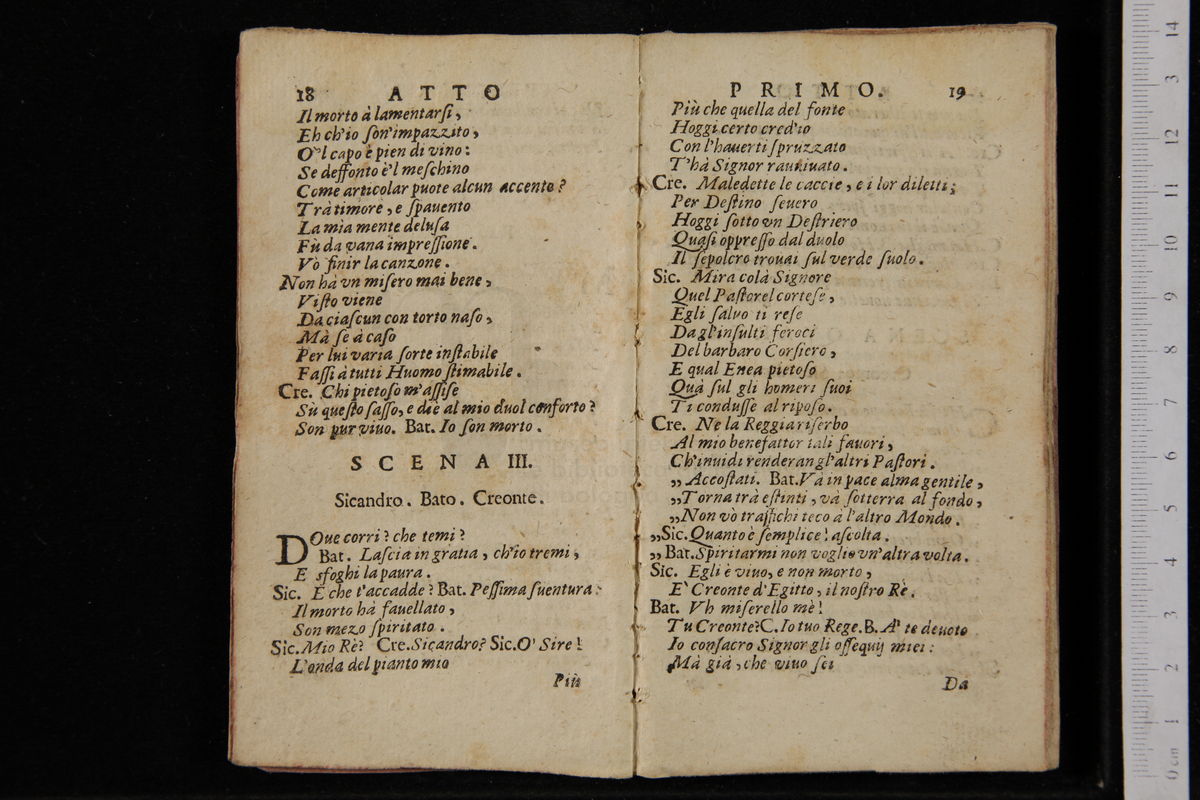 18 ATTO
Il morto à lamentarſi,
Eh ch'io ſon'impazzito,
O'l capo è pien di vino:
Se deffonto è'l meſchino
Come articolar puote alcun accento?
Trà timore, e ſpauento
La mia mente deluſa
Fù da vana impreſſione.
Vò finir la canzone.
Non hà vn miſero mai bene,
Viſto viene
Da ciaſcun con torto naſo,
Mà ſe à caſo
Per lui varia ſorte inſtabile
Faſſi à tutti Huomo ſtimabile.
Cre. Chi pietoſo m'aſſiſe
Sù queſto ſaſſo, e diè al mio duol conforto?
Son pur viuo. Bat. Io ſon morto.
SCENA III.
Sicandro. Bato. Creonte.
DOue corri? che temi?
Bat. Laſcia in gratia, ch'io tremi,
E sfoghi la paura.
Sic. E che t'accadde? Bat. Peſſima ſuentura:
Il morto hà fauellato,
Son mezo ſpiritato.
Sic. Mio Rè? Cre. Sicandro? Sic. O' Sire!
L'onda del pianto mio
Più
PRIMO. 19
Più che quella del fonte
Hoggi certo cred'io
Con l'hauerti ſpruzzato
T'hà Signor rauuiuato.
Cre. Maledette le caccie, e i lor diletti;
Per Deſtino ſeuero
Hoggi ſotto vn Deſtriero
Quaſi oppreſſo dal duolo
Il ſepolcro trouai ſul verde ſuolo.
Sic. Mira colà Signore
Quel Paſtorel corteſe,
Egli ſaluo ti reſe
Da gl'inſulti feroci
Del barbaro Corſiero,
E qual Enea pietoſo
Quà ſul gli homeri ſuoi
Ti conduſſe al ripoſo.
Cre. Ne la Reggia riſerbo
Al mio benefattor tali fauori,
Ch'inuidi renderan gl'altri Paſtori.
„ Accoſtati. Bat. Và in pace alma gentile,
„Torna trà eſtinti, và ſotterra al fondo,
„Non vò traffichi teco à l'altro Mondo.
„Sic. Quanto è ſemplice! aſcolta.
„ Bat. Spiritarmi non voglio vn'altra volta.
Sic. Egli è viuo, e non morto,
E' Creonte d'Egitto, il noſtro Rè.
Bat. Vh miſerello mè!
Tu Creonte? C. Io tuo Rege. B. A' te deuoto
Io conſacro Signor gli oſſequij miei:
Mà già, che viuo ſei
Da
14
3
12
11
10
9
8
7
6
5
4
3
2
1
0 cm